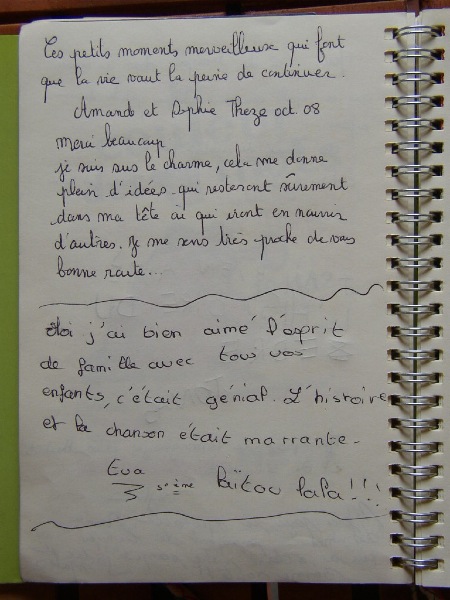 Ces petits moments merveilleux qui font
que la vie vaut la peine de continuer.
Amands et Sophie Theze oct. 08
merci beaucoup
je suis sus le charme, cela me donne
plein d'idées qui resteront sûrement
dans ma tête où qui iront en nourrir
d'autres. Je me sens très proche de vous
bonne route...
Moi j'ai bien aimé l'esprit
de famille avec tous vos
enfants, c'était génial. L'histoire
et la chanson était marrante.
Eva
Laïtou lala!!!